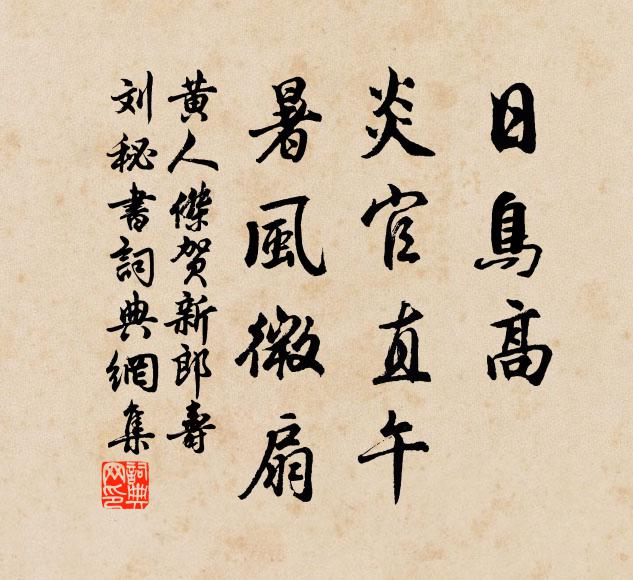 日烏高
炎官直午
暑風微扇
黃人傑賀新郎壽
刘秘書詞典網集
詞典
网印